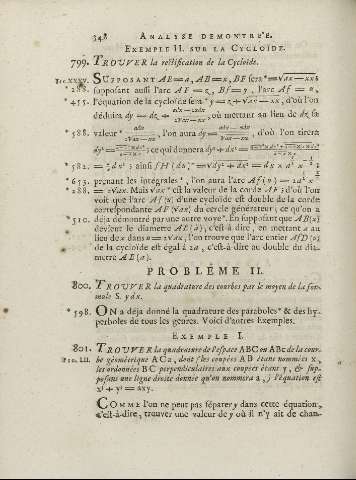 348 ANALYSE DEMONTRÉE.
EXEMPLE II. SUR LA CYCLOÏDE.
799. TROUVER la rectification de la Cycloïde.
SUPPOSANT AE = a, AB = x, BF sera * √ax — xx;
* 288. supposant aussi l'arc AF = z, Bf = y, l'arc Af = u,
* 455. l'équation de la cycloïde sera * y = z + √ax — xx, d'où l'on
déduira dy = dz + où mettant au lieu de dz sa
* 588. valeur * l'on aura dy = , d'où l'on tirera
dy² = ; ce qui donnera dy² + dx²
* 582. ; ainsi fH (du) * = √dy² + dx² = dx × a
* 653. prenant les intégrales *, l'on aura l'arc Af (u) = 2a
* 288. = 2√ax. Mais √ax * est la valeur de la corde AF; d'où l'on
voit que l'arc Af (u) d'une cycloïde est double de la corde
correspondante AF (√ax) du cercle générateur; ce qu'on a
* 510. déja démontré par une autre voye *. En supposant que AB (x)
devient le diametre AE (a), c'est-à-dire, en mettant a au
lieu de x dans u = 2√ax, l'on trouve que l'arc entier AfD (u)
de la cycloïde est égal à 2a, c'est-à-dire au double du dia-
metre AE (a).
PROBLÊME II.
800. TROUVER la quadrature des courbes par le moyen de la for-
mule S. ydx.
* 598. ON a déja donné la quadrature des paraboles * & des hy-
perboles de tous les genres. Voici d'autres Exemples.
EXEMPLE I.
801. TROUVER la quadrature de l'espace ABC ou ABc de la cour-
be géométrique ACa, dont les coupées AB étant nommées x,
les ordonnées BC perpendiculaires aux coupées étant y, & sup-
posant une ligne droite donnée qu'on nommera a, l'équation est
x³ + y³ = axy.
COMME l'on ne peut pas séparer y dans cette équation,
c'est-à-dire, trouver une valeur de y où il n'y ait de chan-